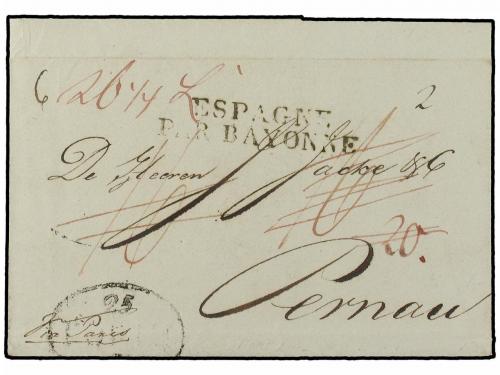 6 26 1/4 L 2
ESPAGNE
PAR BAYONNE
De Heeren Jacke & C
20
Pernau
25
via Paris